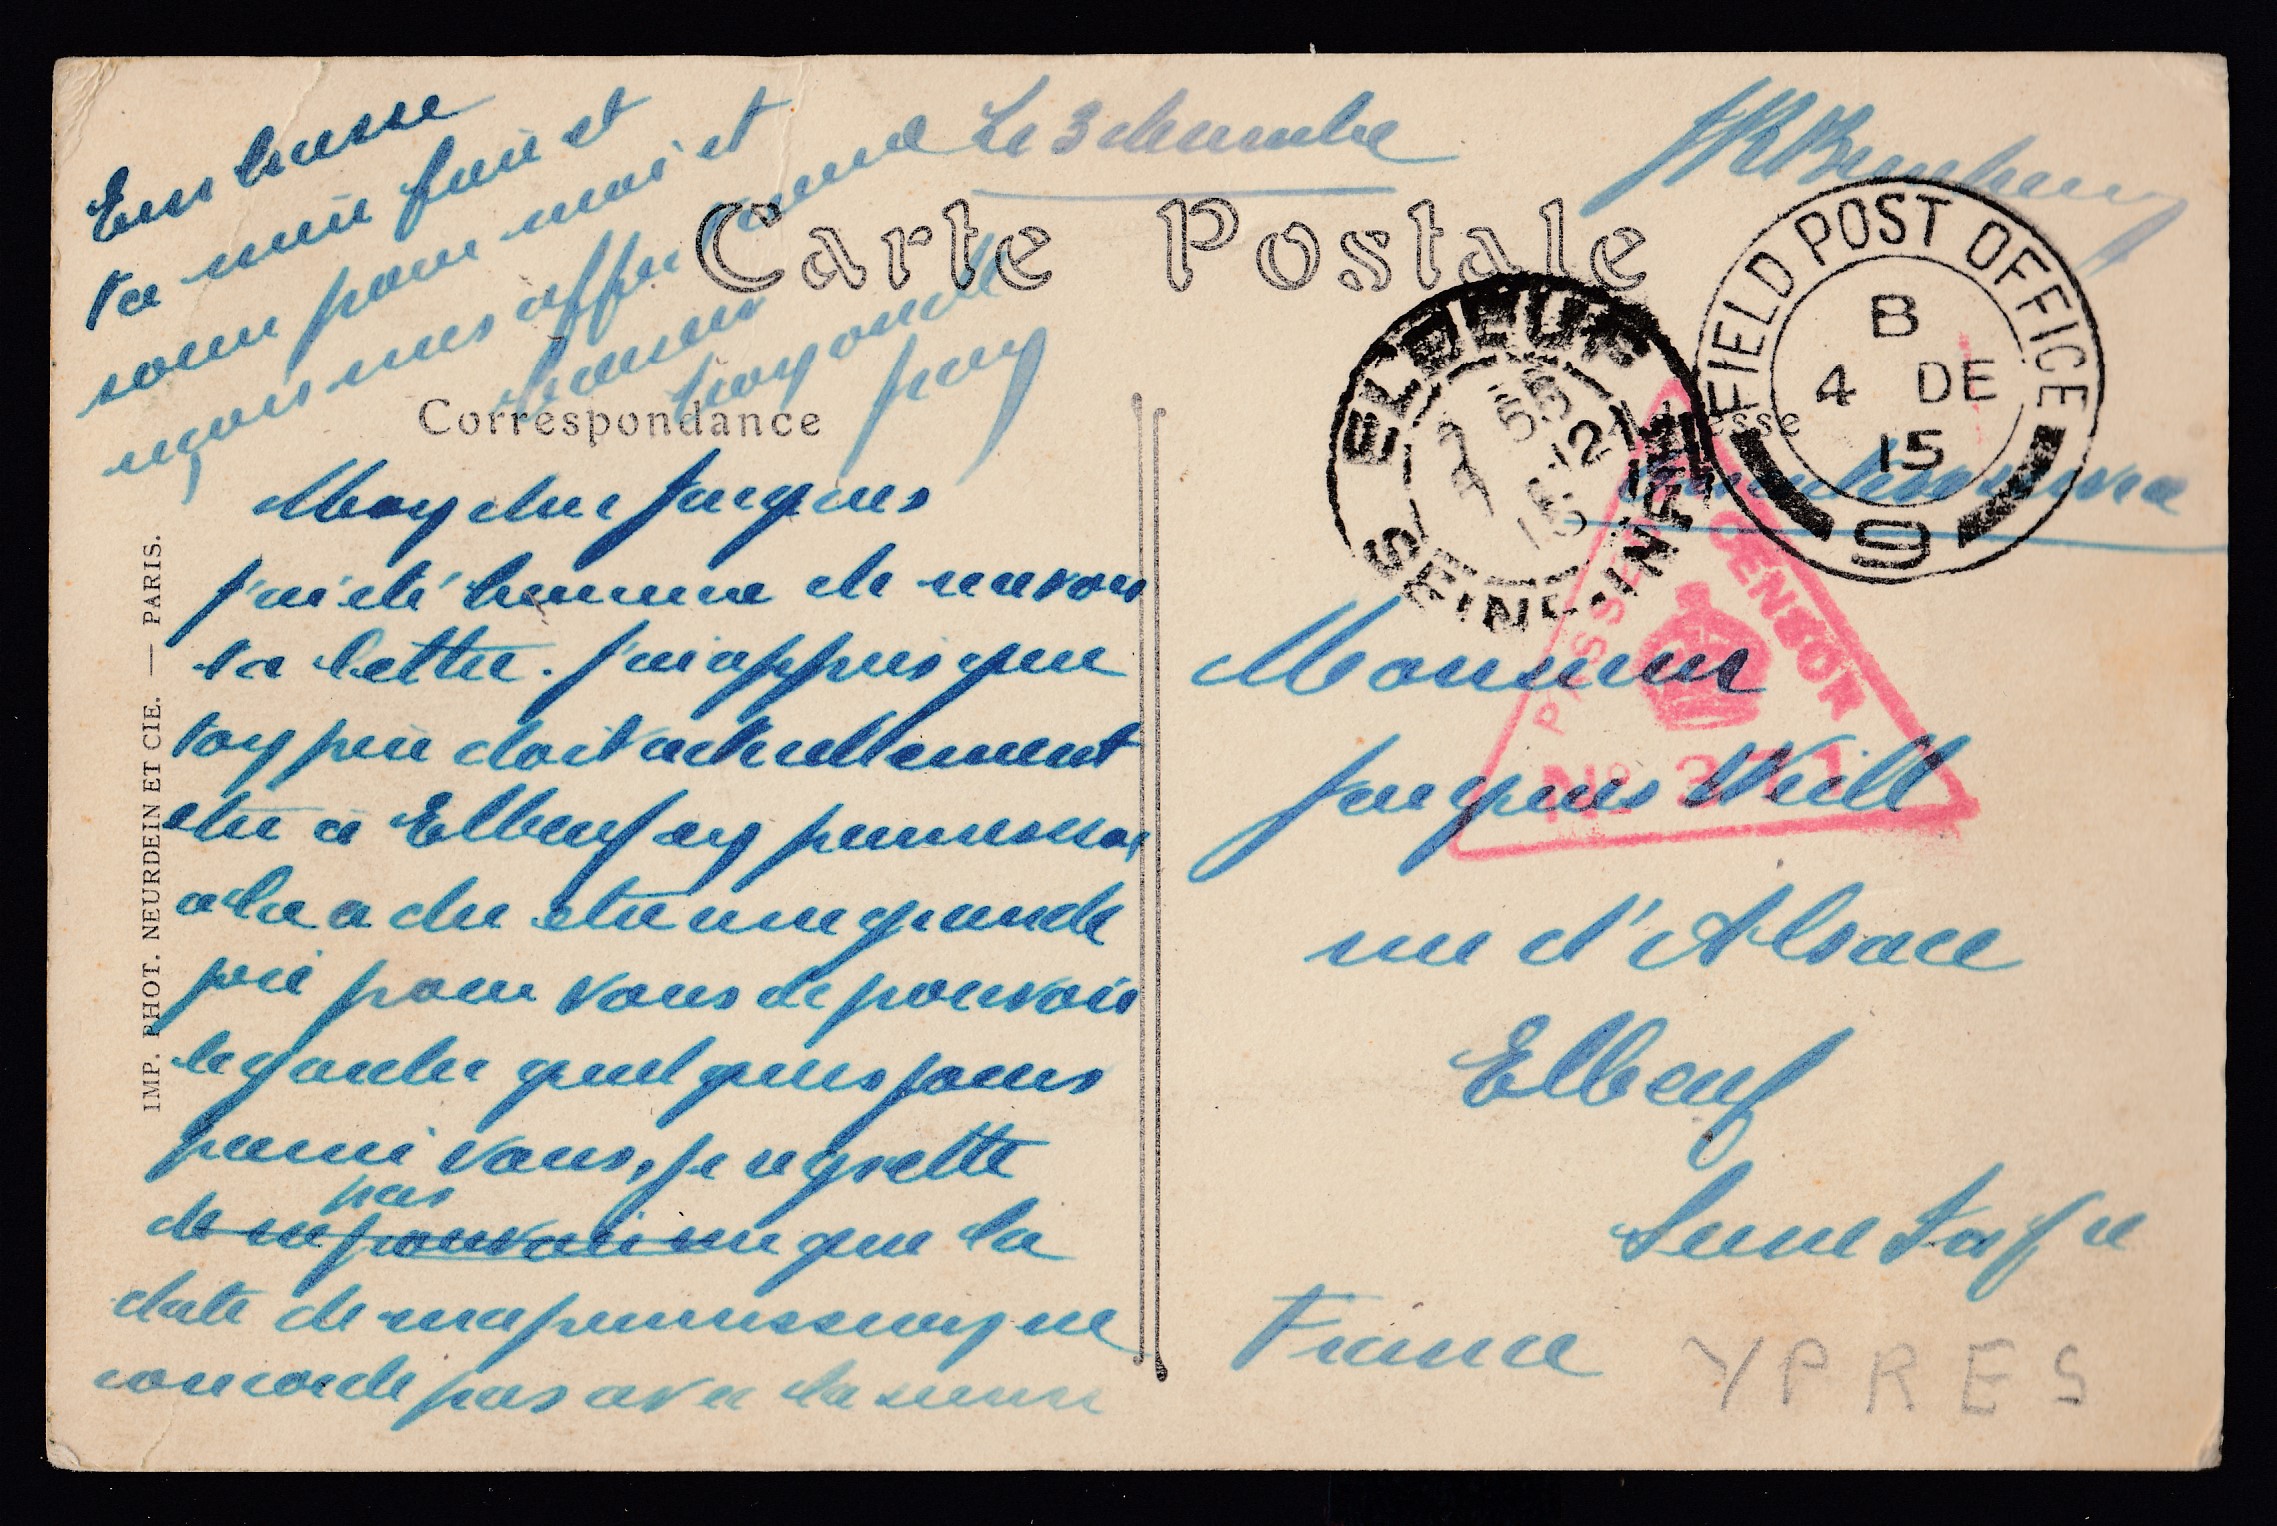 Le 3 décembre
Carte Postale
Correspondance
Mon cher Jacques
j'ai été heureux de recevoir
ta lettre. J'ai appris que
ton père doit actuellement
être à Elbeuf en permission
cela a du être une grande
joie pour vous de pouvoir
le garder quelques jours
parmi vous, je regrette
pas
de ne pouvoir que la
date de ma permission ne
concorde pas avec la sienne
Embrasse
ta mère frère et
soeur pour moi et
reçois mes affectueux
IMP. PHOT. NEURDEIN ET CIE. — PARIS.
FIELD POST OFFICE
B
4 DE
15
9
ELBEUF
SEINE-INFRE
Adresse
On active service
PASSED CENSOR
No 371
Monsieur
Jacques Weill
rue d'Alsace
Elbeuf
Seine Infre
France
YPRES